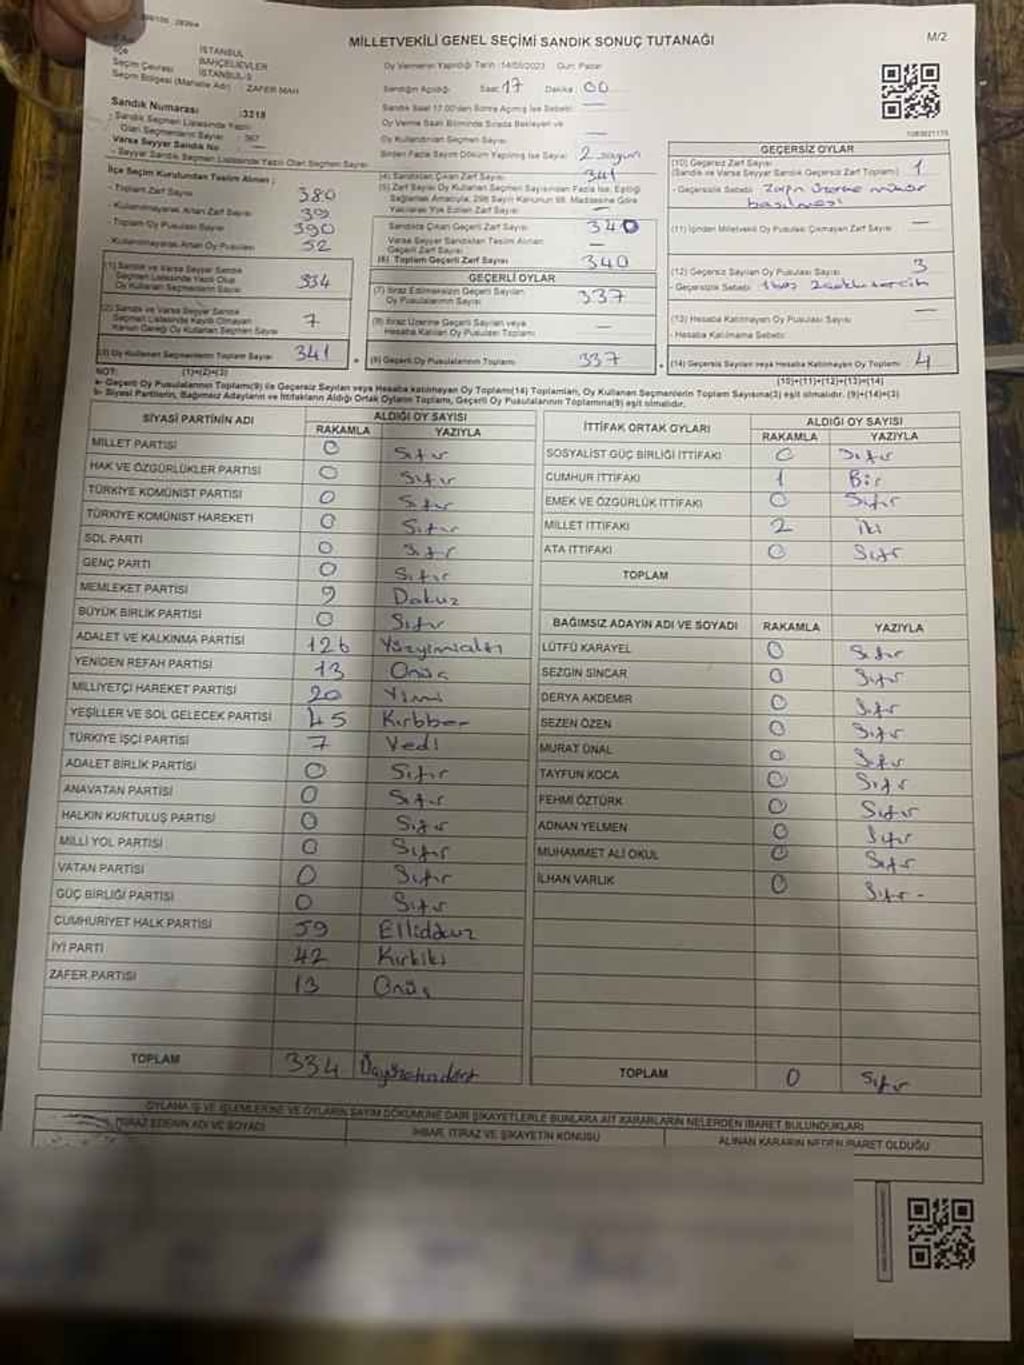 MİLLETVEKİLİ GENEL SEÇİMİ SANDIK SONUÇ TUTANAĞI
M/2
İlçe
Seçim Çevresi
Seçim Bölgesi (Mahalle Adı)
İSTANBUL
BAHÇELİEVLER
İSTANBUL-3
ZAFER MAH
Oy Vermenin Yapıldığı Tarih :14/05/2023 Gün: Pazar
Sandığın Açıldığı Saat: 17 Dakika: 00
Sandık Saat 17.00'den Sonra Açılmış İse Sebebi: —
Sandık Numarası :3218
Sandık Seçmen Listesinde Yazılı
Olan Seçmenlerin Sayısı
Varsa Seyyar Sandık No
Seyyar Sandık Seçmen Listesinde Yazılı Olan Seçmen Sayısı
Oy Verme Saati Bitiminde Sırada Bekleyen ve
Oy Kullandırılan Seçmen Sayısı —
Birden Fazla Sayım Döküm Yapılmış İse Sayısı: 2 sayım
İlçe Seçim Kurulundan Teslim Alınan;
- Toplam Zarf Sayısı 380
- Kullanılmayarak Artan Zarf Sayısı 39
- Toplam Oy Pusulası Sayısı 390
- Kullanılmayarak Artan Oy Pusulası 52
(1) Sandık ve Varsa Seyyar Sandık
Seçmen Listesinde Yazılı Olup
Oy Kullanan Seçmenlerin Sayısı 334
(2) Sandık ve Varsa Seyyar Sandık
Seçmen Listesinde Kayıtlı Olmayan
Kanun Gereği Oy Kullanan Seçmen Sayısı 7
(3) Oy Kullanan Seçmenlerin Toplam Sayısı 341
(1)+(2)=(3)
(4) Sandıktan Çıkan Zarf Sayısı 341
(5) Zarf Sayısı Oy Kullanan Seçmen Sayısından Fazla İse, Eşitliği
Sağlamak Amacıyla, 298 Sayılı Kanunun 98. Maddesine Göre
Yakılarak Yok Edilen Zarf Sayısı —
Sandıkta Çıkan Geçerli Zarf Sayısı 340
Varsa Seyyar Sandıktan Teslim Alınan
Geçerli Zarf Sayısı —
(6) Toplam Geçerli Zarf Sayısı 340
GEÇERLİ OYLAR
(7) İtiraz Edilmeksizin Geçerli Sayılan
Oy Pusulalarının Sayısı 337
(8) İtiraz Üzerine Geçerli Sayılan veya
Hesaba Katılan Oy Pusulası Toplamı —
(9) Geçerli Oy Pusulalarının Toplamı 337
GEÇERSİZ OYLAR
(10) Geçersiz Zarf Sayısı
(Sandık ve Varsa Seyyar Sandık Geçersiz Zarf Toplamı) 1
- Geçersizlik Sebebi: Zarfın üzerine mühür
basılmesi
(11) İçinden Milletvekili Oy Pusulası Çıkmayan Zarf Sayısı —
(12) Geçersiz Sayılan Oy Pusulası Sayısı 3
- Geçersizlik Sebebi: 1 boş 2 çoklu tercih
(13) Hesaba Katılmayan Oy Pusulası Sayısı —
- Hesaba Katılmama Sebebi:
(14) Geçersiz Sayılan veya Hesaba Katılmayan Oy Toplamı 4
(10)+(11)+(12)+(13)=(14)
NOT:
a- Geçerli Oy Pusulalarının Toplamı(9) ile Geçersiz Sayılan veya Hesaba katılmayan Oy Toplamı(14) Toplamları, Oy Kullanan Seçmenlerin Toplam Sayısına(3) eşit olmalıdır. (9)+(14)=(3)
b- Siyasi Partilerin, Bağımsız Adayların ve İttifakların Aldığı Ortak Oyların Toplamı, Geçerli Oy Pusulalarının Toplamına(9) eşit olmalıdır.
SİYASİ PARTİNİN ADI ALDIĞI OY SAYISI
RAKAMLA YAZIYLA
MİLLET PARTİSİ 0 Sıfır
HAK VE ÖZGÜRLÜKLER PARTİSİ 0 Sıfır
TÜRKİYE KOMÜNİST PARTİSİ 0 Sıfır
TÜRKİYE KOMÜNİST HAREKETİ 0 Sıfır
SOL PARTİ 0 Sıfır
GENÇ PARTİ 0 Sıfır
MEMLEKET PARTİSİ 9 Dokuz
BÜYÜK BİRLİK PARTİSİ 0 Sıfır
ADALET VE KALKINMA PARTİSİ 126 Yüzyirmialtı
YENİDEN REFAH PARTİSİ 13 Onüç
MİLLİYETÇİ HAREKET PARTİSİ 20 Yirmi
YEŞİLLER VE SOL GELECEK PARTİSİ 45 Kırkbeş
TÜRKİYE İŞÇİ PARTİSİ 7 Yedi
ADALET BİRLİK PARTİSİ 0 Sıfır
ANAVATAN PARTİSİ 0 Sıfır
HALKIN KURTULUŞ PARTİSİ 0 Sıfır
MİLLİ YOL PARTİSİ 0 Sıfır
VATAN PARTİSİ 0 Sıfır
GÜÇ BİRLİĞİ PARTİSİ 0 Sıfır
CUMHURİYET HALK PARTİSİ 59 Ellidokuz
İYİ PARTİ 42 Kırkiki
ZAFER PARTİSİ 13 Onüç
TOPLAM 334 Üçyüzotuzdört
İTTİFAK ORTAK OYLARI ALDIĞI OY SAYISI
RAKAMLA YAZIYLA
SOSYALİST GÜÇ BİRLİĞİ İTTİFAKI 0 Sıfır
CUMHUR İTTİFAKI 1 Bir
EMEK VE ÖZGÜRLÜK İTTİFAKI 0 Sıfır
MİLLET İTTİFAKI 2 iki
ATA İTTİFAKI 0 Sıfır
TOPLAM
BAĞIMSIZ ADAYIN ADI VE SOYADI RAKAMLA YAZIYLA
LÜTFÜ KARAYEL 0 Sıfır
SEZGİN SİNCAR 0 Sıfır
DERYA AKDEMİR 0 Sıfır
SEZEN ÖZEN 0 Sıfır
MURAT ÜNAL 0 Sıfır
TAYFUN KOCA 0 Sıfır
FEHMİ ÖZTÜRK 0 Sıfır
ADNAN YELMEN 0 Sıfır
MUHAMMET ALİ OKUL 0 Sıfır
İLHAN VARLIK 0 Sıfır -
TOPLAM 0 Sıfır
OYLAMA İŞ VE İŞLEMLERİNE VE OYLARIN SAYIM DÖKÜMÜNE DAİR ŞİKAYETLERLE BUNLARA AİT KARARLARIN NELERDEN İBARET BULUNDUKLARI
İTİRAZ EDENİN ADI VE SOYADI
İHBAR, İTİRAZ VE ŞİKAYETİN KONUSU
ALINAN KARARIN NEDEN İBARET OLDUĞU